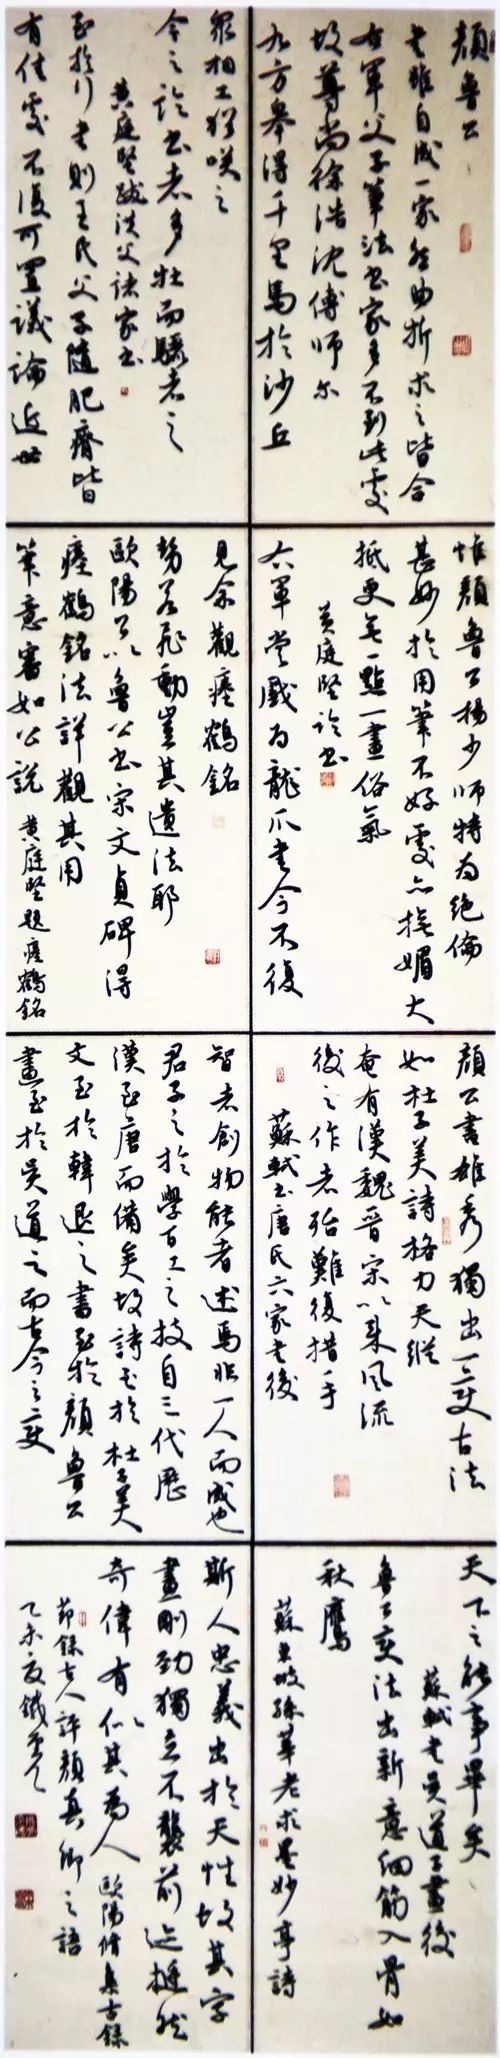 顏魯公
書雖自成一家然曲折求之皆合
右軍父子筆法書家多不到此處
故尊尚徐浩沈傳師尔
九方皋得千里馬於沙丘
眾相工猶咲之
今之論書者多牡而驪者也
黃庭堅跋洪父訣家書
至於行書則王氏父子隨肥瘠皆
有佳處不復可置議論近世
惟顏魯公楊少師特為絕倫
甚妙於用筆不好處亦嫵媚大
抵更無一點一畫俗氣
黃庭堅論書
右軍嘗戲為龍爪書今不復
見余觀瘞鶴銘
勢若飛動豈其遺法耶
歐陽公以魯公書宋文貞碑得
瘞鶴銘法詳觀其用
筆意審如公說 黃庭堅題瘞鶴銘
顏公書雄秀獨出一變古法
如杜子美詩格力天縱
奄有漢魏晉宋以來風流
後之作者殆難復措手
蘇軾書唐氏六家書後
智者創物能者述焉非一人而成也
君子之於學百工之技自三代歷
漢至唐而備矣故詩至於杜子美
文至於韓退之書至於顏魯公
畫至於吳道子而古今之變
天下之能事畢矣
蘇軾書吳道子畫後
魯公變法出新意細筋入骨如
秋鷹
蘇東坡孫莘老求墨妙亭詩
斯人忠義出於天性故其字
畫剛勁獨立不襲前迹挺然
奇偉有似其為人 歐陽脩集古錄
節錄古人評顏真卿之語
乙未夏